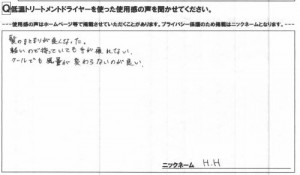 Q低温トリートメントドライヤーを使った使用感の声を聞かせてください。
---使用感の声はホームページ等で掲載させていただくことがあります。プライバシー保護のため掲載はニックネームとなります。---
髪のまとまりが良くなった。
軽いので持っていても手が疲れない。
クールでも風量が変わらないのが良い。
ニックネーム H.H